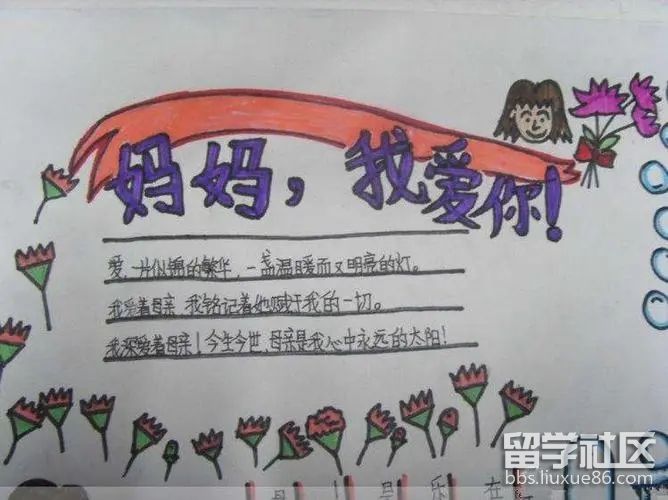 妈妈，我爱你！
爱，一片似锦的繁华，一盏温暖而又明亮的灯。
我爱着母亲，我铭记着她赋于我的一切。
我深爱着母亲！今生今世，母亲是我心中永远的太阳！
母 是 乐 在
留学社区
bbs.liuxue86.com